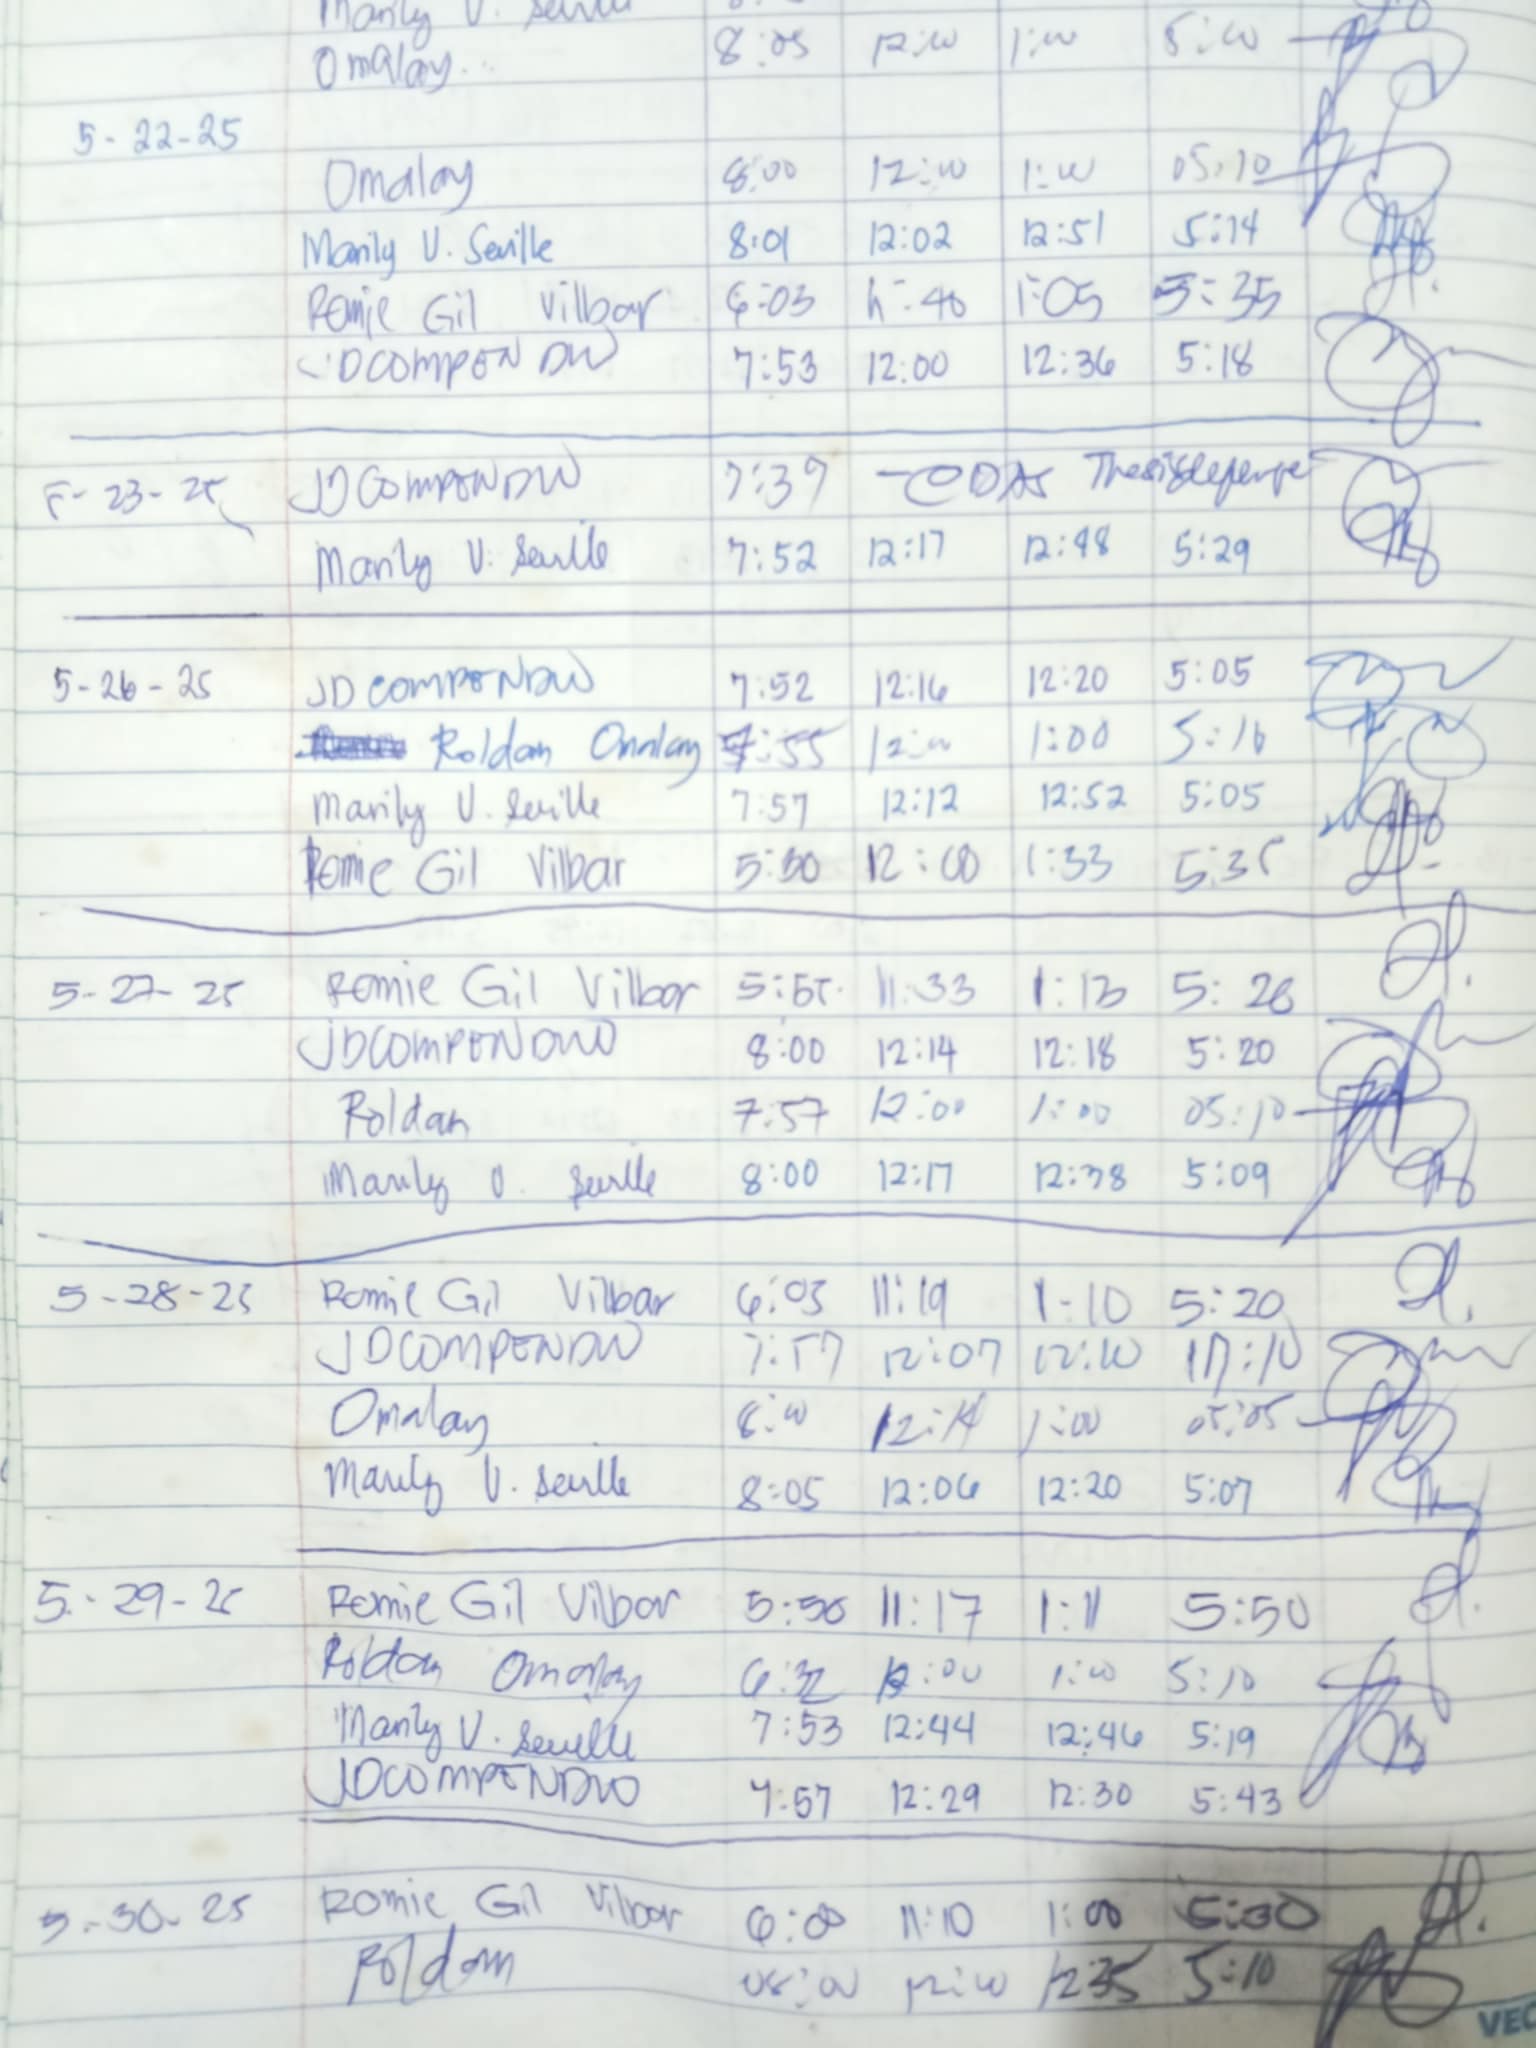 Marily V. Seville
Omalay 8:05 12:00 1:00 5:00
5-22-25
Omalay 8:00 12:00 1:00 05:10
Marily V. Seville 8:01 12:02 12:51 5:14
Romie Gil Vilbar 6:03 11:40 1:05 5:35
JDCOMPENDIO 7:53 12:00 12:36 5:18
5-23-25 JDCOMPENDIO 7:39 - @DAS Thesis defense
Marily V. Seville 7:52 12:17 12:48 5:29
5-26-25 JDCOMPENDIO 7:52 12:16 12:20 5:05
Roldan Omalay 7:55 12:00 1:00 5:16
Marily V. Seville 7:57 12:12 12:52 5:05
Romie Gil Vilbar 5:50 12:00 1:33 5:35
5-27-25 Romie Gil Vilbar 5:55 11:33 1:13 5:26
JDCOMPENDIO 8:00 12:14 12:18 5:20
Roldan 7:57 12:00 1:00 05:10
Marily V. Seville 8:00 12:17 12:38 5:09
5-28-25 Romie Gil Vilbar 6:03 11:19 1-10 5:20
JDCOMPENDIO 7:57 12:07 12:10 17:10
Omalay 8:00 12:14 1:00 05:05
Marily V. Seville 8:05 12:06 12:20 5:07
5-29-25 Romie Gil Vilbar 5:56 11:17 1:11 5:50
Roldan Omalay 6:32 12:00 1:00 5:10
Marily V. Seville 7:53 12:44 12:46 5:19
JDCOMPENDIO 7:57 12:29 12:30 5:43
5-30-25 Romie Gil Vilbar 6:00 11:10 1:00 5:30
Roldan 08:00 12:00 12:35 5:10